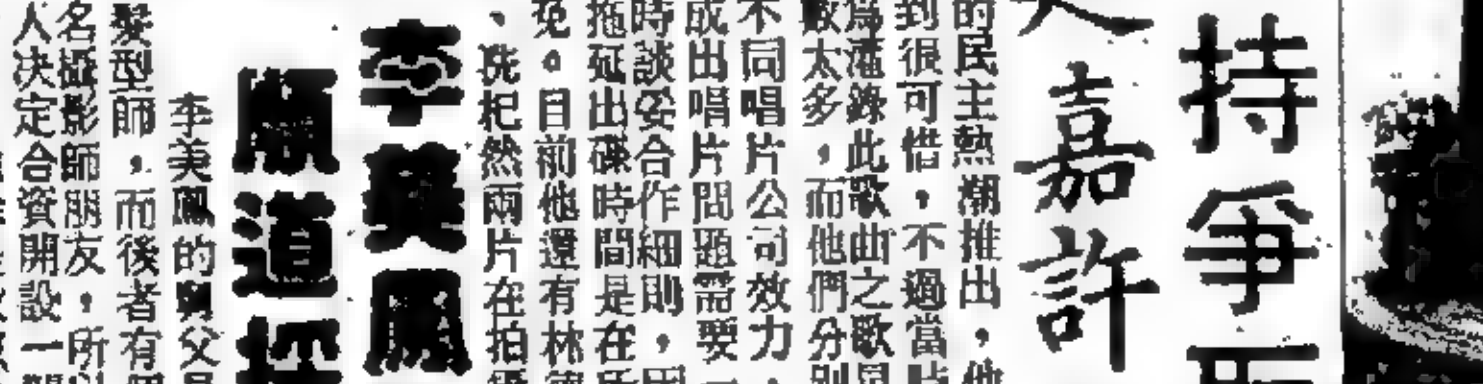 持爭
嘉許
的民主熱潮推出，他
到很可惜，不過當
為灌錄此歌曲之歌星
太多，而他們分別
不同唱片公司效力，
成出唱片問題需要一
時談妥合作細則，
拖延出碟時間是在
免。目前他還有林
、冼杞然兩片在拍
李美鳳
順道
李美鳳的舅父
髮型師，而後者有
名攝影師朋友，所以
人決定合資開設一